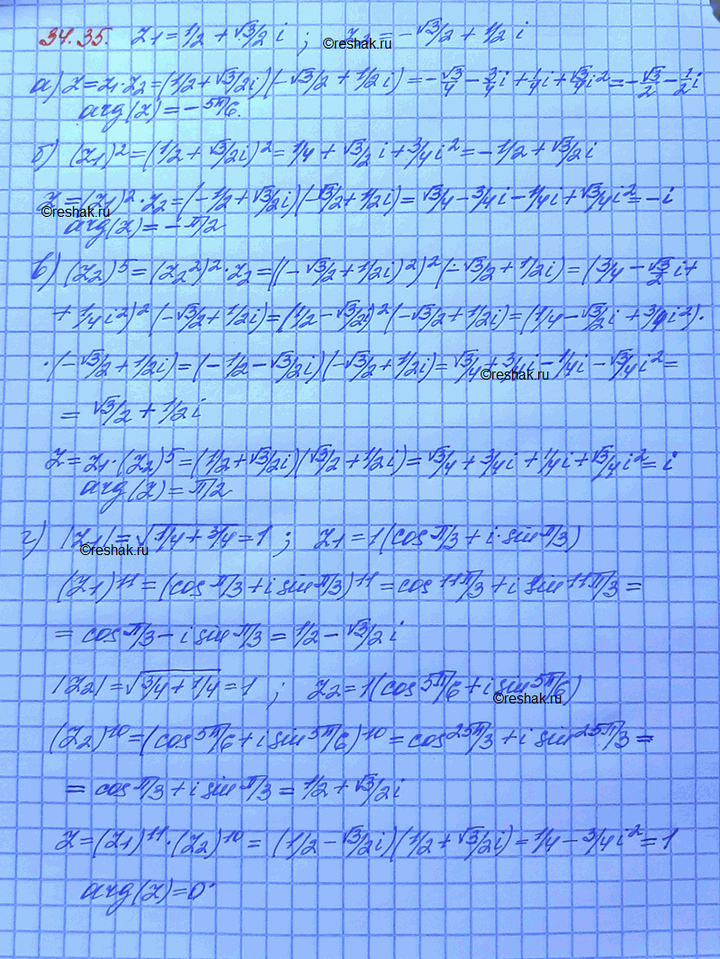 34.35. z₁=1/2 + √3/2 i ; z₂=-√3/2 + 1/2 i
©reshak.ru
а) z=z₁·z₂=(1/2+√3/2i)(-√3/2+1/2i)=-√3/4-3/4i+1/4i+√3/4i²=-√3/2-1/2i
arg(z)=-5π/6.
б) (z₁)²=(1/2+√3/2i)²=1/4+√3/2i+3/4i²=-1/2+√3/2i
z=(z₁)²·z₂=(-1/2+√3/2i)(-√3/2+1/2i)=√3/4-3/4i-1/4i+√3/4i²=-i
©reshak.ru
arg(z)=-π/2
в) (z₂)⁵=(z₂²)²·z₂=((-√3/2+1/2i)²)²(-√3/2+1/2i)=(3/4-√3/2i+
+1/4i²)²(-√3/2+1/2i)=(1/2-√3/2i)²(-√3/2+1/2i)=(1/4-√3/2i+3/4i²)·
·(-√3/2+1/2i)=(-1/2-√3/2i)(-√3/2+1/2i)=√3/4+3/4i-1/4i-√3/4i²=
©reshak.ru
=√3/2+1/2i
z=z₁·(z₂)⁵=(1/2+√3/2i)(√3/2+1/2i)=√3/4+3/4i+1/4i+√3/4i²=i
arg(z)=π/2
г) |z₁|=√(1/4+3/4)=1 ; z₁=1(cosπ/3+i·sinπ/3)
©reshak.ru
(z₁)¹¹=(cosπ/3+i sinπ/3)¹¹=cos11π/3+i sin11π/3=
=cosπ/3-i sinπ/3=1/2-√3/2i
|z₂|=√(3/4+1/4)=1 ; z₂=1(cos5π/6+i sin5π/6)
©reshak.ru
(z₂)¹⁰=(cos5π/6+i sin5π/6)¹⁰=cos25π/3+i sin25π/3=
=cosπ/3+i sinπ/3=1/2+√3/2i
z=(z₁)¹¹·(z₂)¹⁰=(1/2-√3/2i)(1/2+√3/2i)=1/4-3/4i²=1
arg(z)=0.